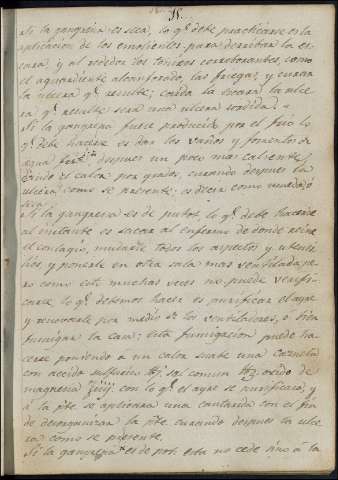 Si la gangrena es seca, lo q.e debe practicarse es la
aplicacion de los emolientes para derribar la es-
cara, y al rededor los tonicos corroborantes, como
el aguardiente alcanforado, las friegas, y curar
la ulcera q.e resulte; caida la escara la ulce
ra q.e resulte será una ulcera sordida.
Si la gangrena fuese producida por el frio lo
q.e debe hacerse es dar los baños y fomentos de
agua despues un poco mas caliente
el calor por grados, curando despues la
ulcera como se presente; es decir como
seca
Si la gangrena es de putor, lo q.e debe hacerse
al instante es sacar al enfermo de donde reine
el contagio, mudarle todos los aspectos y utensi
lios y ponerle en otra sala mas ventilada, pe
ro como esto muchas veces no puede verifi-
carse lo q.e debemos hacer es purificar el ayre
y renovarle por medio de los ventiladores, o bien
fumigar la cam; esta fumigacion puede ha
cerse poniendo a un calor suave una cazuela
con accido sulfurico sal comun oxido de
magnesia con lo q.e el ayre se purificará, y
á la p.te se aplicara una cantarida con el fin
de desorganizar la p.te curando despues la ulce
ra como se presente.
Si la gangrena es de pot. esta no cede sino á la